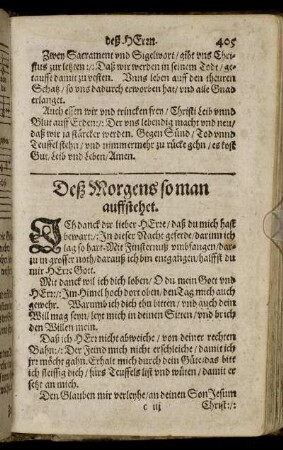 deß HErrn. 405
Zwey Sacrament vnd Sigelwort/ gibt vns Chri-
stus zur letzten:/: Daß wir werden in seinem Todt/ ge-
taufft damit zu vesten. Vnns leben auff den theuren
Schatz/ so vns dadurch erworben hat/ vnd alle Gnad
erlanget.
Auch essen wir vnd trincken frey/ Christi Leib vnnd
Blut auff Erden:/: Der vns lebendig macht vnd neu/
daß wir ja stärcker werden. Gegen Sünd/ Tod vnnd
Teuffel stehn/ vnd nimmermehr zu rück gehn/ es kost
Gut/ Leib vnd Leben/ Amen.
Deß Morgens so man
auffstehet.
ICh danck der lieber HErre/ daß du mich hast
bewart:/: In dieser Nacht geferde/ darinn ich
lag so hart. Mit Finsternuß vmbfangen/ dar-
zu in grosser noth/ darauß ich bin entgangen/ halffst du
mir HErre Gott.
Mit danck wil ich dich loben/ O du mein Gott vnd
HErr:/: Im Himel hoch dort oben/ den Tag mich auch
gewehr. Warumb ich dich thu bitten/ vnd auch dein
Will mag seyn/ leyt mich in deinen Sitten/ vnd brich
den Willen mein.
Daß ich HErr nicht abweiche/ von deiner rechten
Bahn:/: Der Feind mich nicht erschleiche/ damit ich
irr möcht gahn. Erhalt mich durch dein Güte/ das bitt
ich fleissig dich/ fürs Teuffels list vnd wüten/ damit er
setzt an mich.
Den Glauben mir verleyhe/ an deinen Son Jesum
c iij Christ:/: